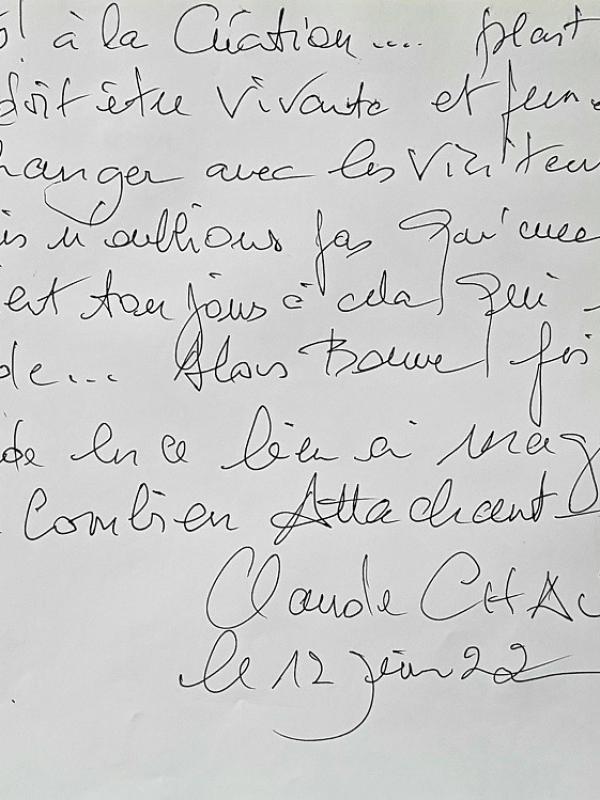 ! à la Création.... plast
doit être vivante et fun
hanger avec les visiteu
is n'oublions pas qu'une
est toujours à cela qui
de... Alors Bonne fois
de en ce lieu si mag
Combien Attachant
Claude CHAU
le 12 juin 22